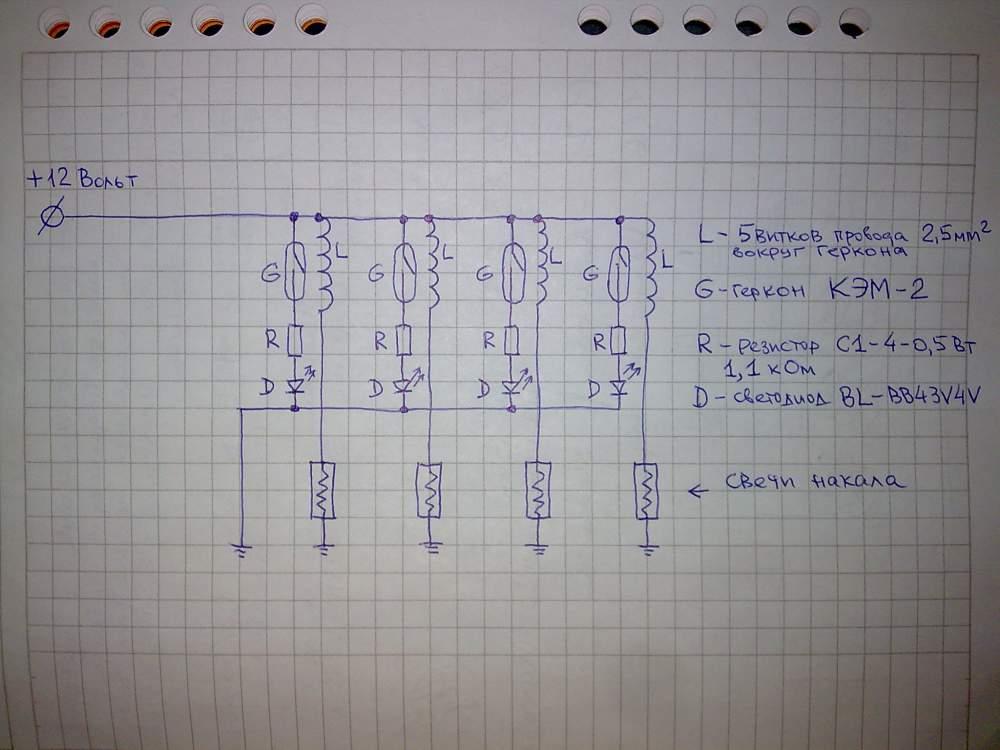 +12 Вольт
L - 5 витков провода 2,5мм²
вокруг геркона
G - геркон КЭМ-2
R - резистор С1-4-0,5Вт
1,1 кОм
D - светодиод BL-BB43V4V
← свечи накала
G L G L G L G L
R R R R
D D D D